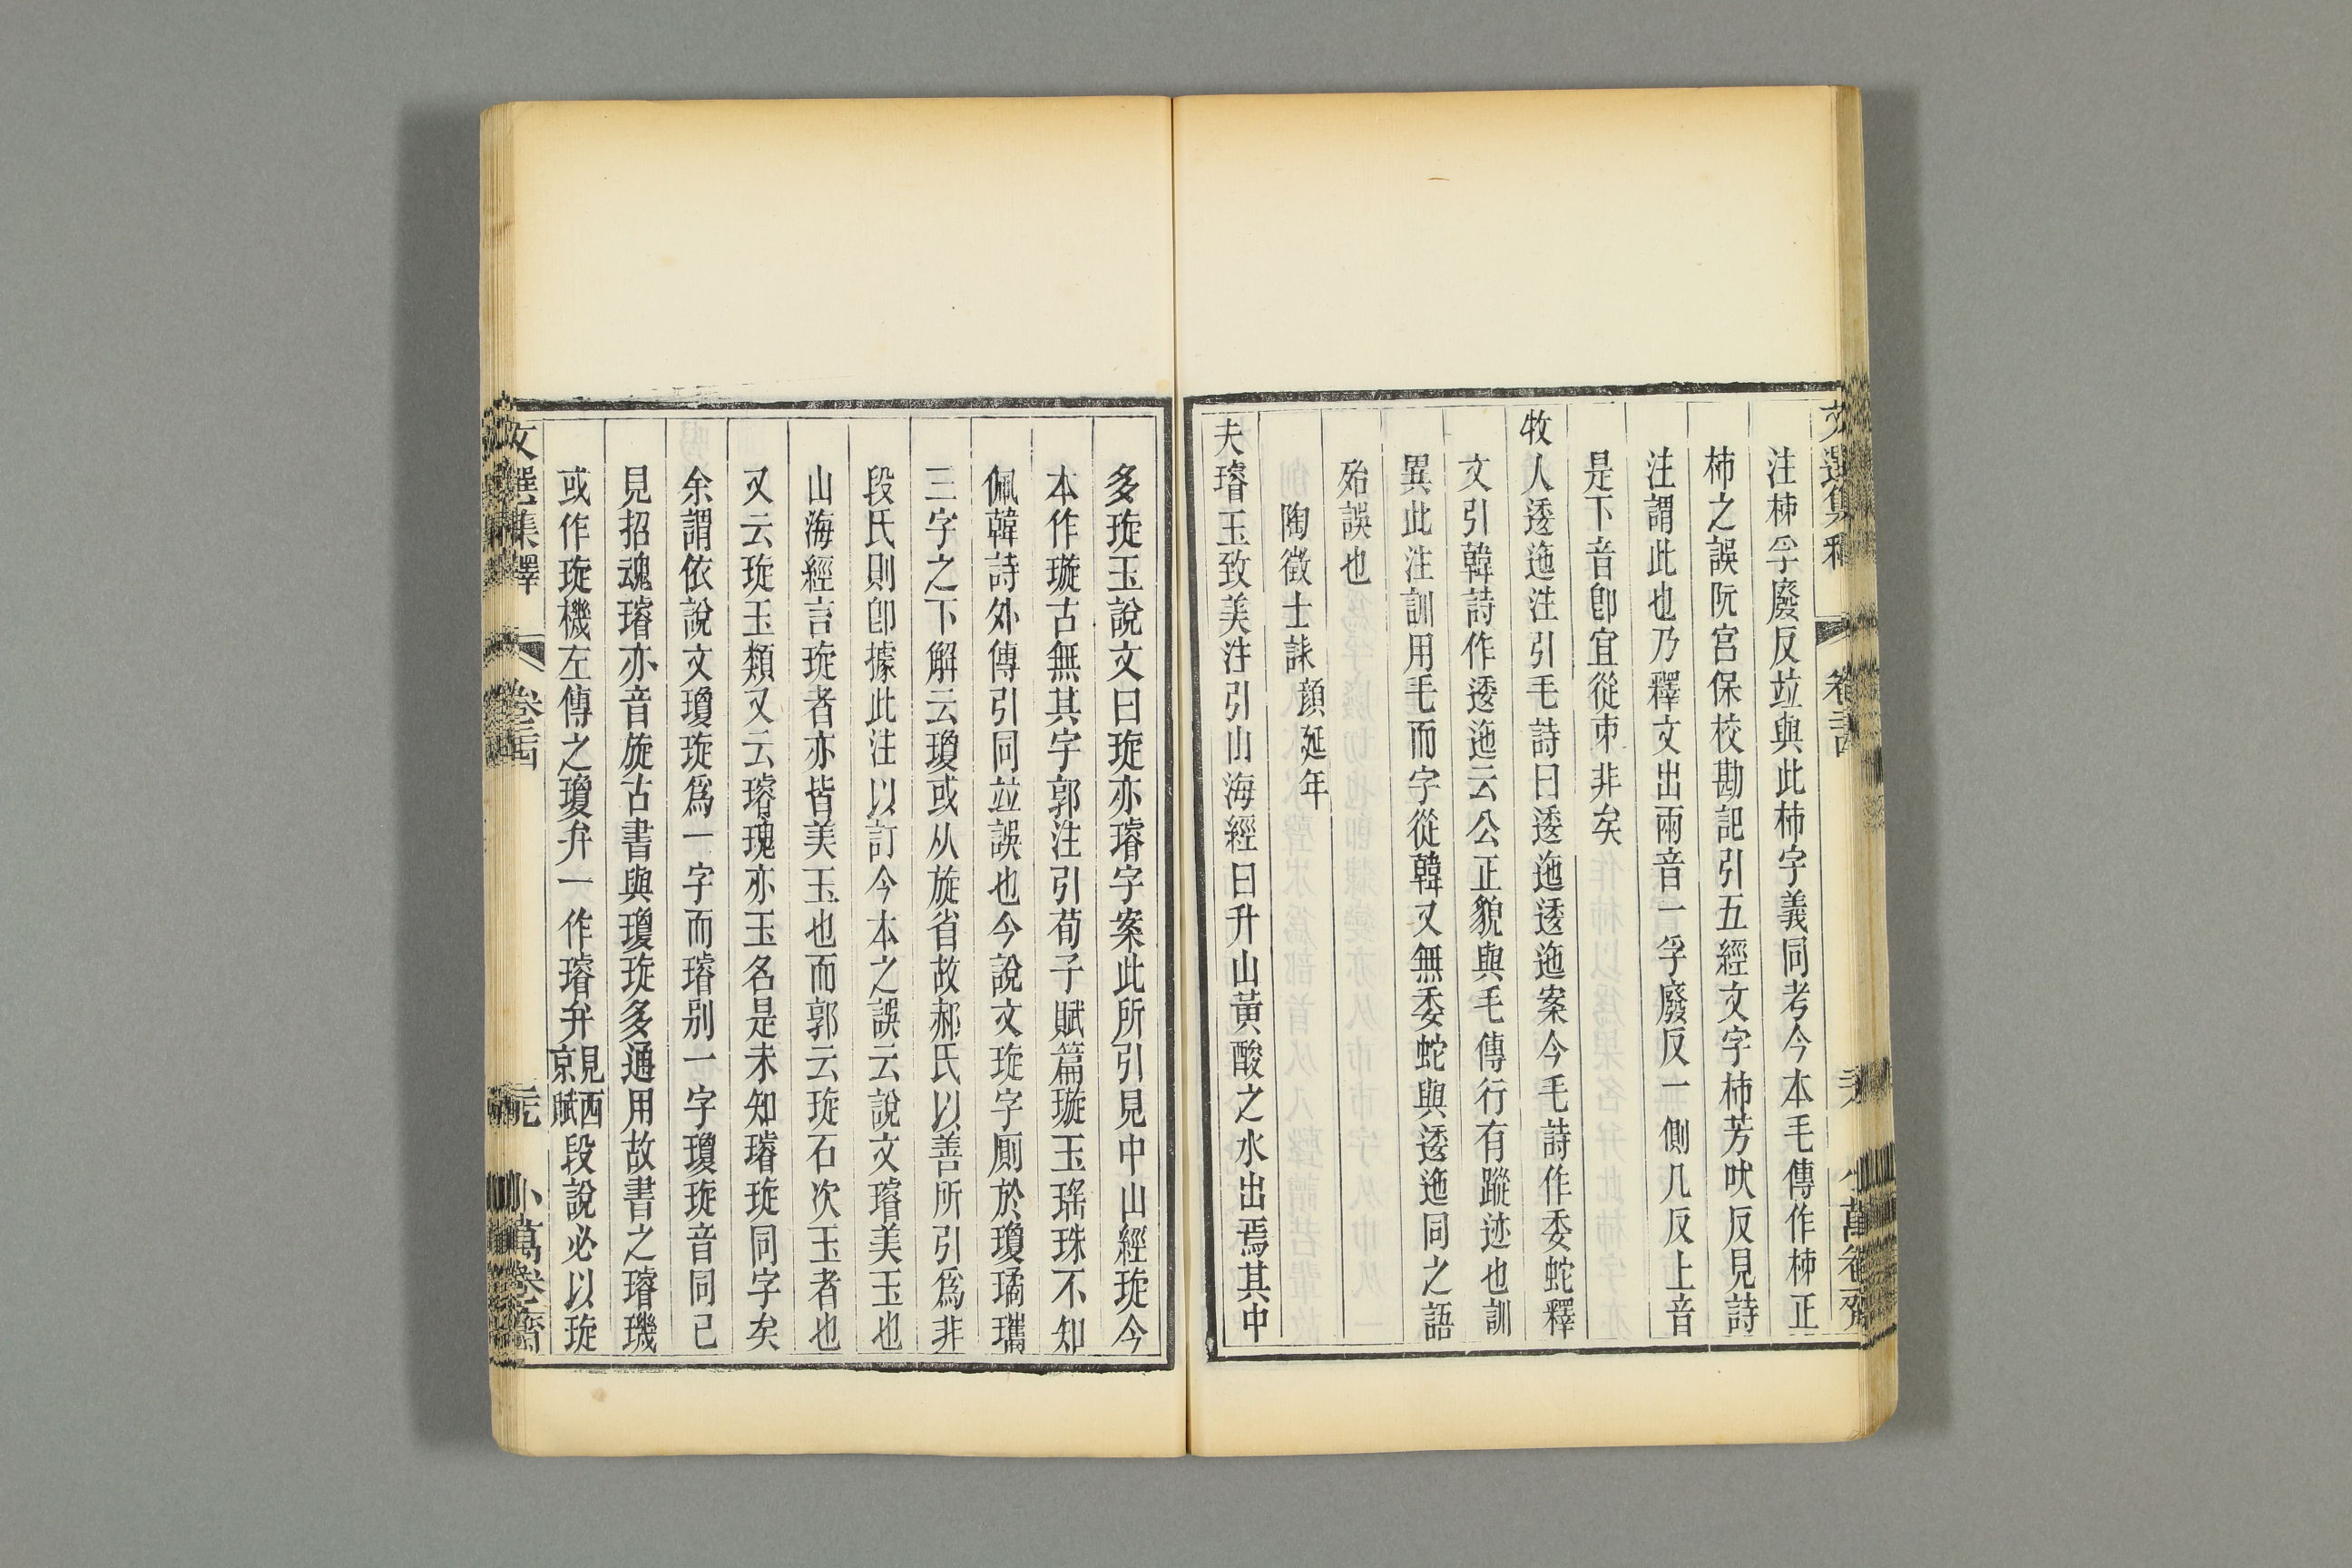 注柿孚廢反竝與此柿字義同考今本毛傳作柿正
柿之誤阮宮保校勘記引五經文字柿芳吠反見詩
注謂此也乃釋文出兩音一孚廢反一側几反上音
是下音卽宜從朿非矣
牧人逶迤注引毛詩曰逶迤逶迤案今毛詩作委蛇釋
文引韓詩作逶迤云公正貌與毛傳行有蹤迹也訓
異此注訓用毛而字從韓又無委蛇與逶迤同之語
殆誤也
陶徵士誄顏延年
夫璿玉致美注引山海經曰升山黃酸之水出焉其中
多琁玉說文曰琁亦璿字案此所引見中山經琁今
本作璇古無其字郭注引荀子賦篇璇玉瑤珠不知
佩韓詩外傳引同竝誤也今說文琁字厠於瓊璚瓗
三字之下解云瓊或从旋省故郝氏以善所引爲非
段氏則卽據此注以訂今本之誤云說文璿美玉也
山海經言琁者亦皆美玉也而郭云琁石次玉者也
又云琁玉類又云璿瑰亦玉名是未知璿琁同字矣
余謂依說文瓊琁爲一字而璿别一字瓊琁音同已
見招魂璿亦音旋古書與瓊琁多通用故書之璿璣
或作琁機左傳之瓊弁一作璿弁見西京賦段說必以琁
文選集釋 卷二十四 二九 小萬卷齋